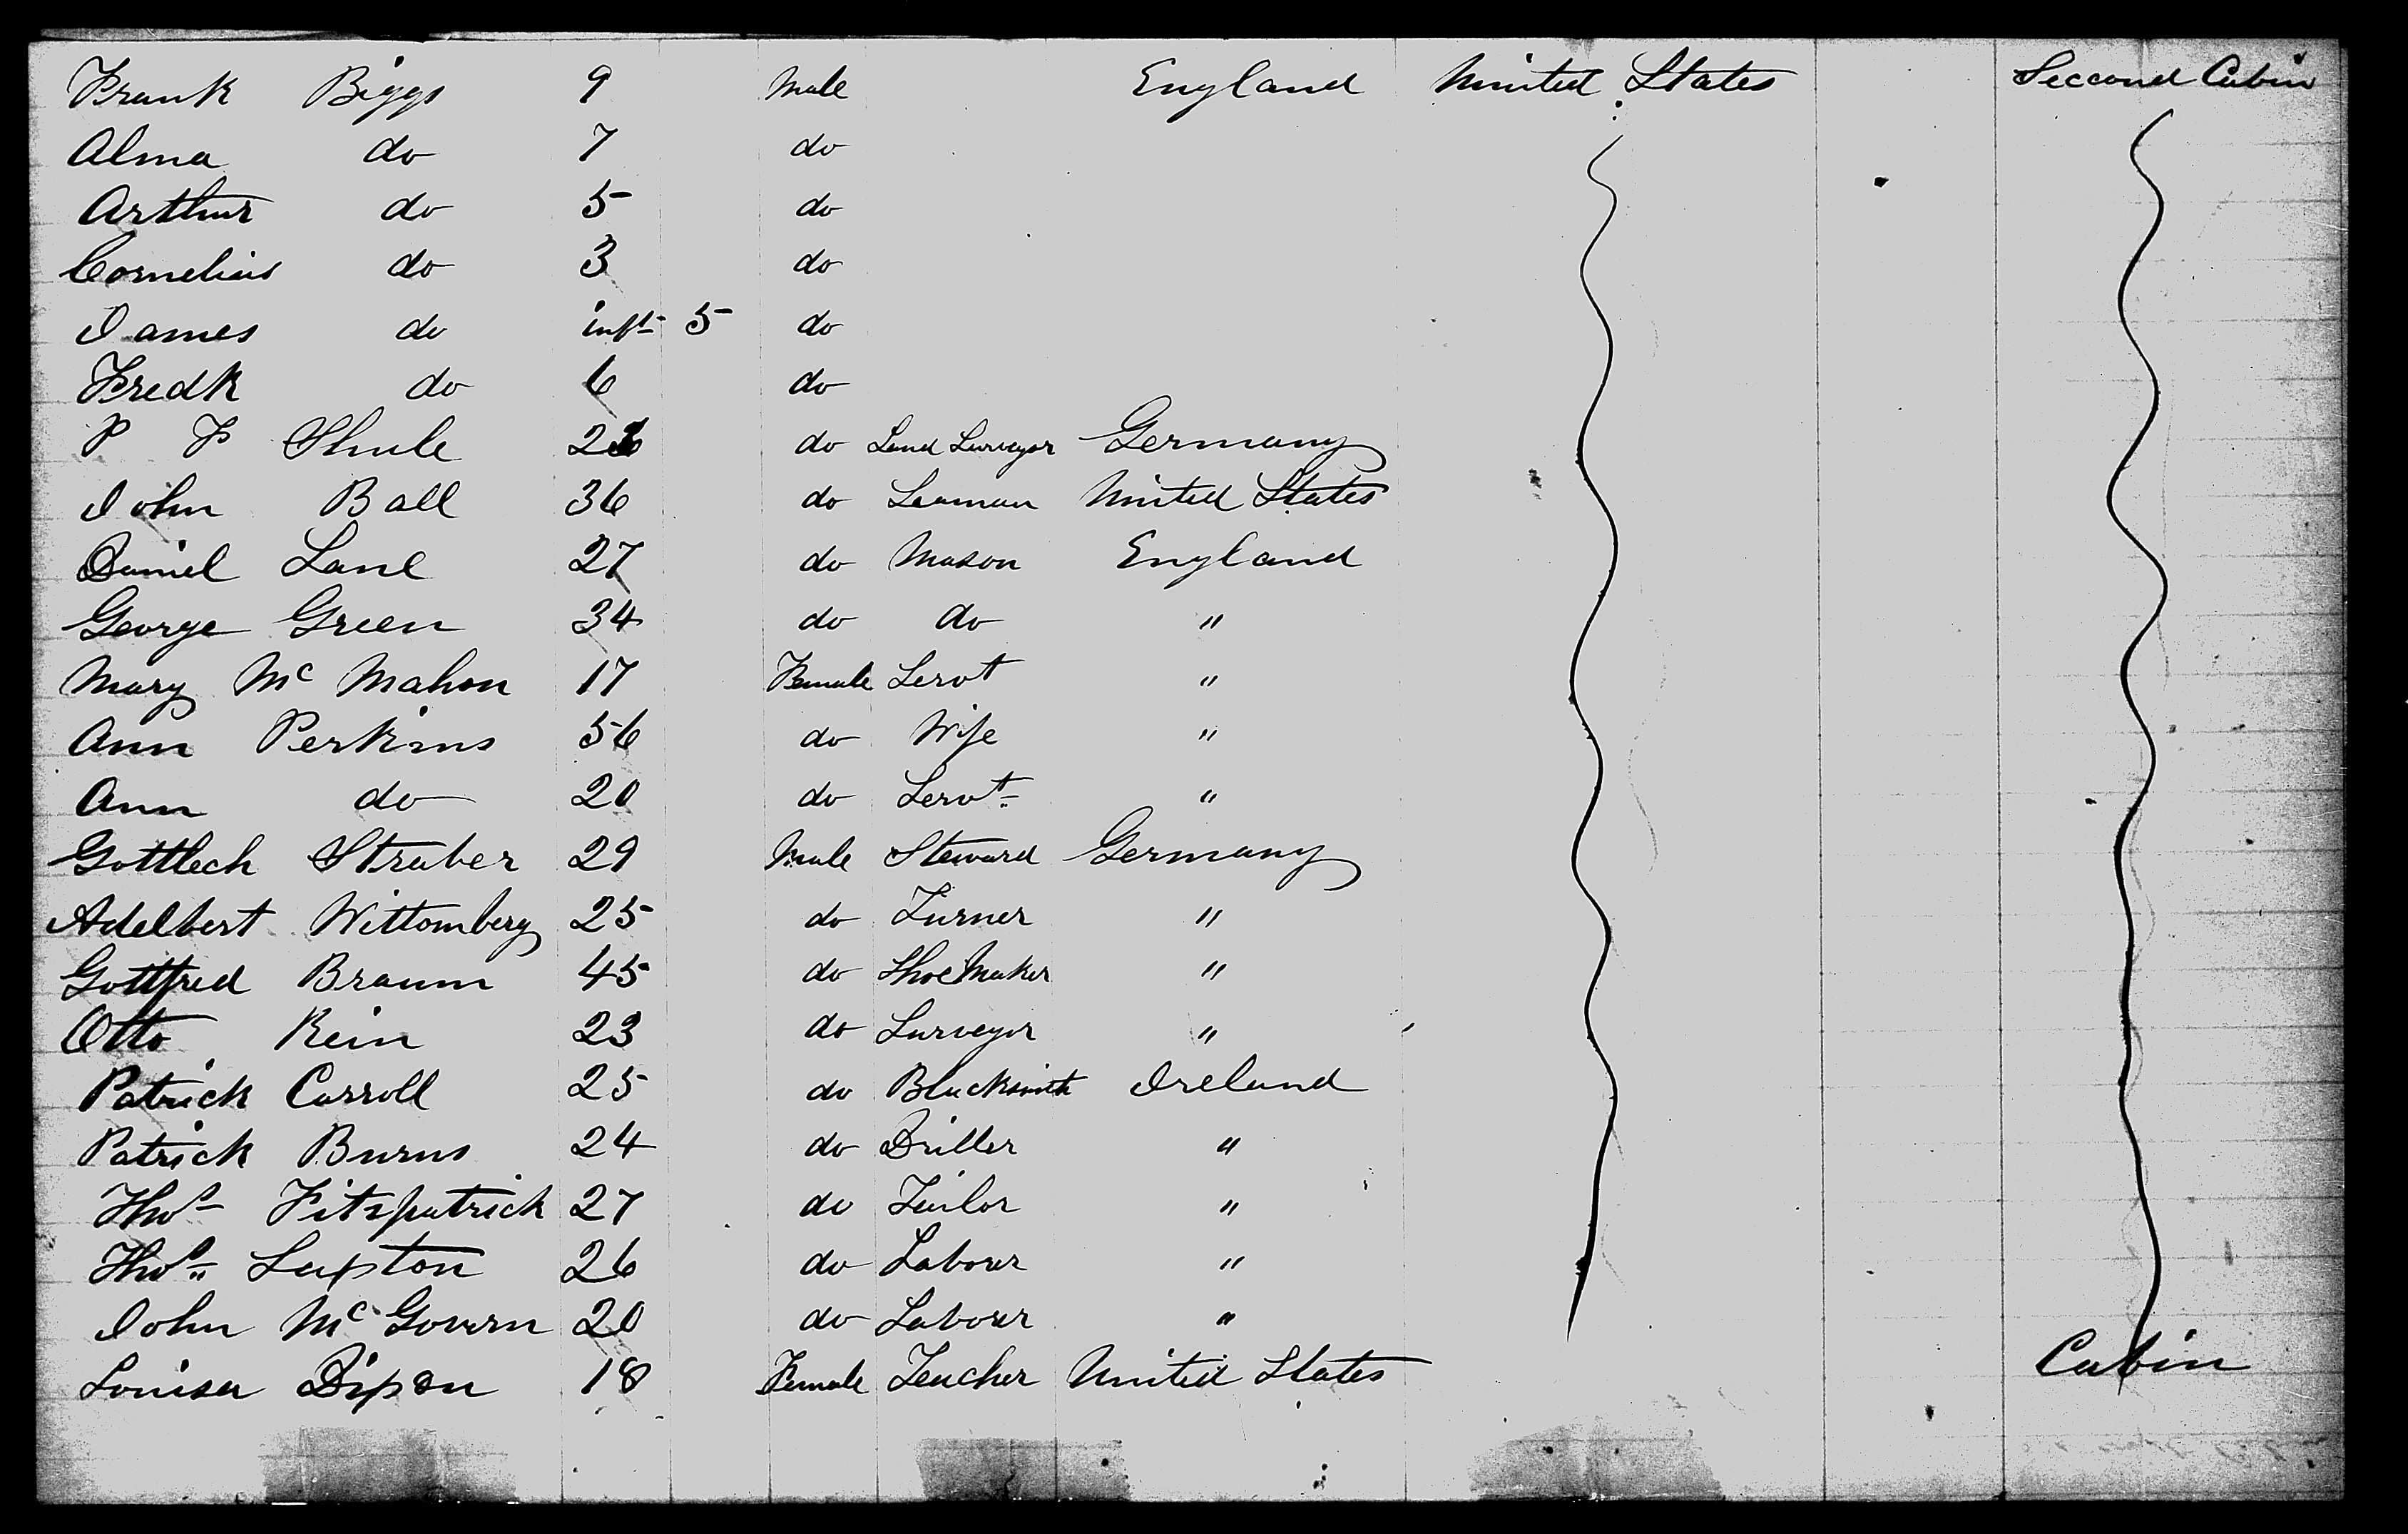 Frank Biggs 9 Male England United States Seccond Cabin
Alma do 7 do
Arthur do 5 do
Cornelius do 3 do
James do inft 5 do
Fredk do 6 do
P F Shule do Land Surveyor Germany
John Ball 36 do Seaman United States
Daniel Lane 27 do Mason England
George Green 34 do do "
Mary Mc Mahon 17 Female Servt "
Ann Perkins 56 do Wife "
Ann do 20 do Servt "
Gottlech Straber 29 Male Steward Germany
Adelbert Wittomberg 25 do Turner "
Gottfred Braum 45 do Shoe Maker "
Otto Rein 23 do Surveyor "
Patrick Carroll 25 do Blacksmith Ireland
Patrick Burns 24 do Driller "
Thos Fitzpatrick 27 do Tailor "
Thos Lupton 26 do Labour "
John Mc Govern 20 do Labour "
Louisa Dixon 18 Female Teacher United States Cabin